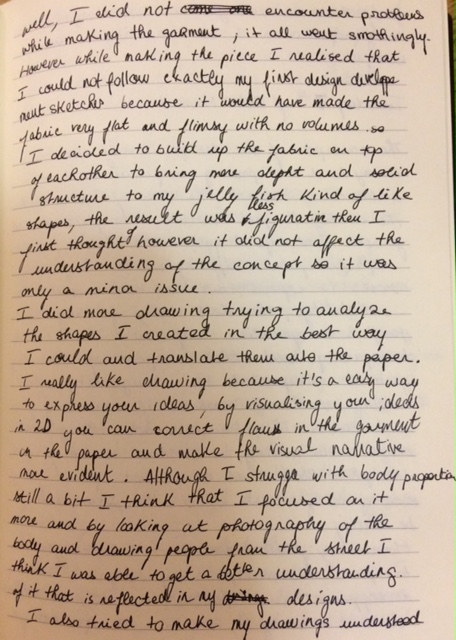 well, I did not come one encounter problems
while making the garment, it all went smothingly.
However while making the piece I realised that
I could not follow exactly my first design develope
ment sketches because it would have made the
fabric very flat and flimsy with no volumes. so
I decided to build up the fabric on top
of eachother to bring more depht and solid
structure to my jelly fish kind of like
shapes, the result was less figuratin then I
first thought of however it did not affect the
understanding of the concept so it was
only a minor issue.
I did more drawing trying to analyze
the shapes I created in the best way
I could and translate them into the paper.
I really like drawing because it's a easy way
to express your ideas, by visualising your ideas
in 2D you can correct flaws in the garment
on the paper and make the visual narrative
more evident. Although I struggle with body proportion
still a bit I think that I focused on it
more and by looking at photography of the
body and drawing people from the street I
think I was able to get a better understanding.
of it that is reflected in my designs.
I also tried to make my drawings understood